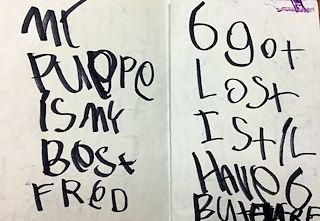 Mr
PUPPe
IS MY
BeSt
FReD
6 got
LoSt
I StiL
HAVe 6
BUt